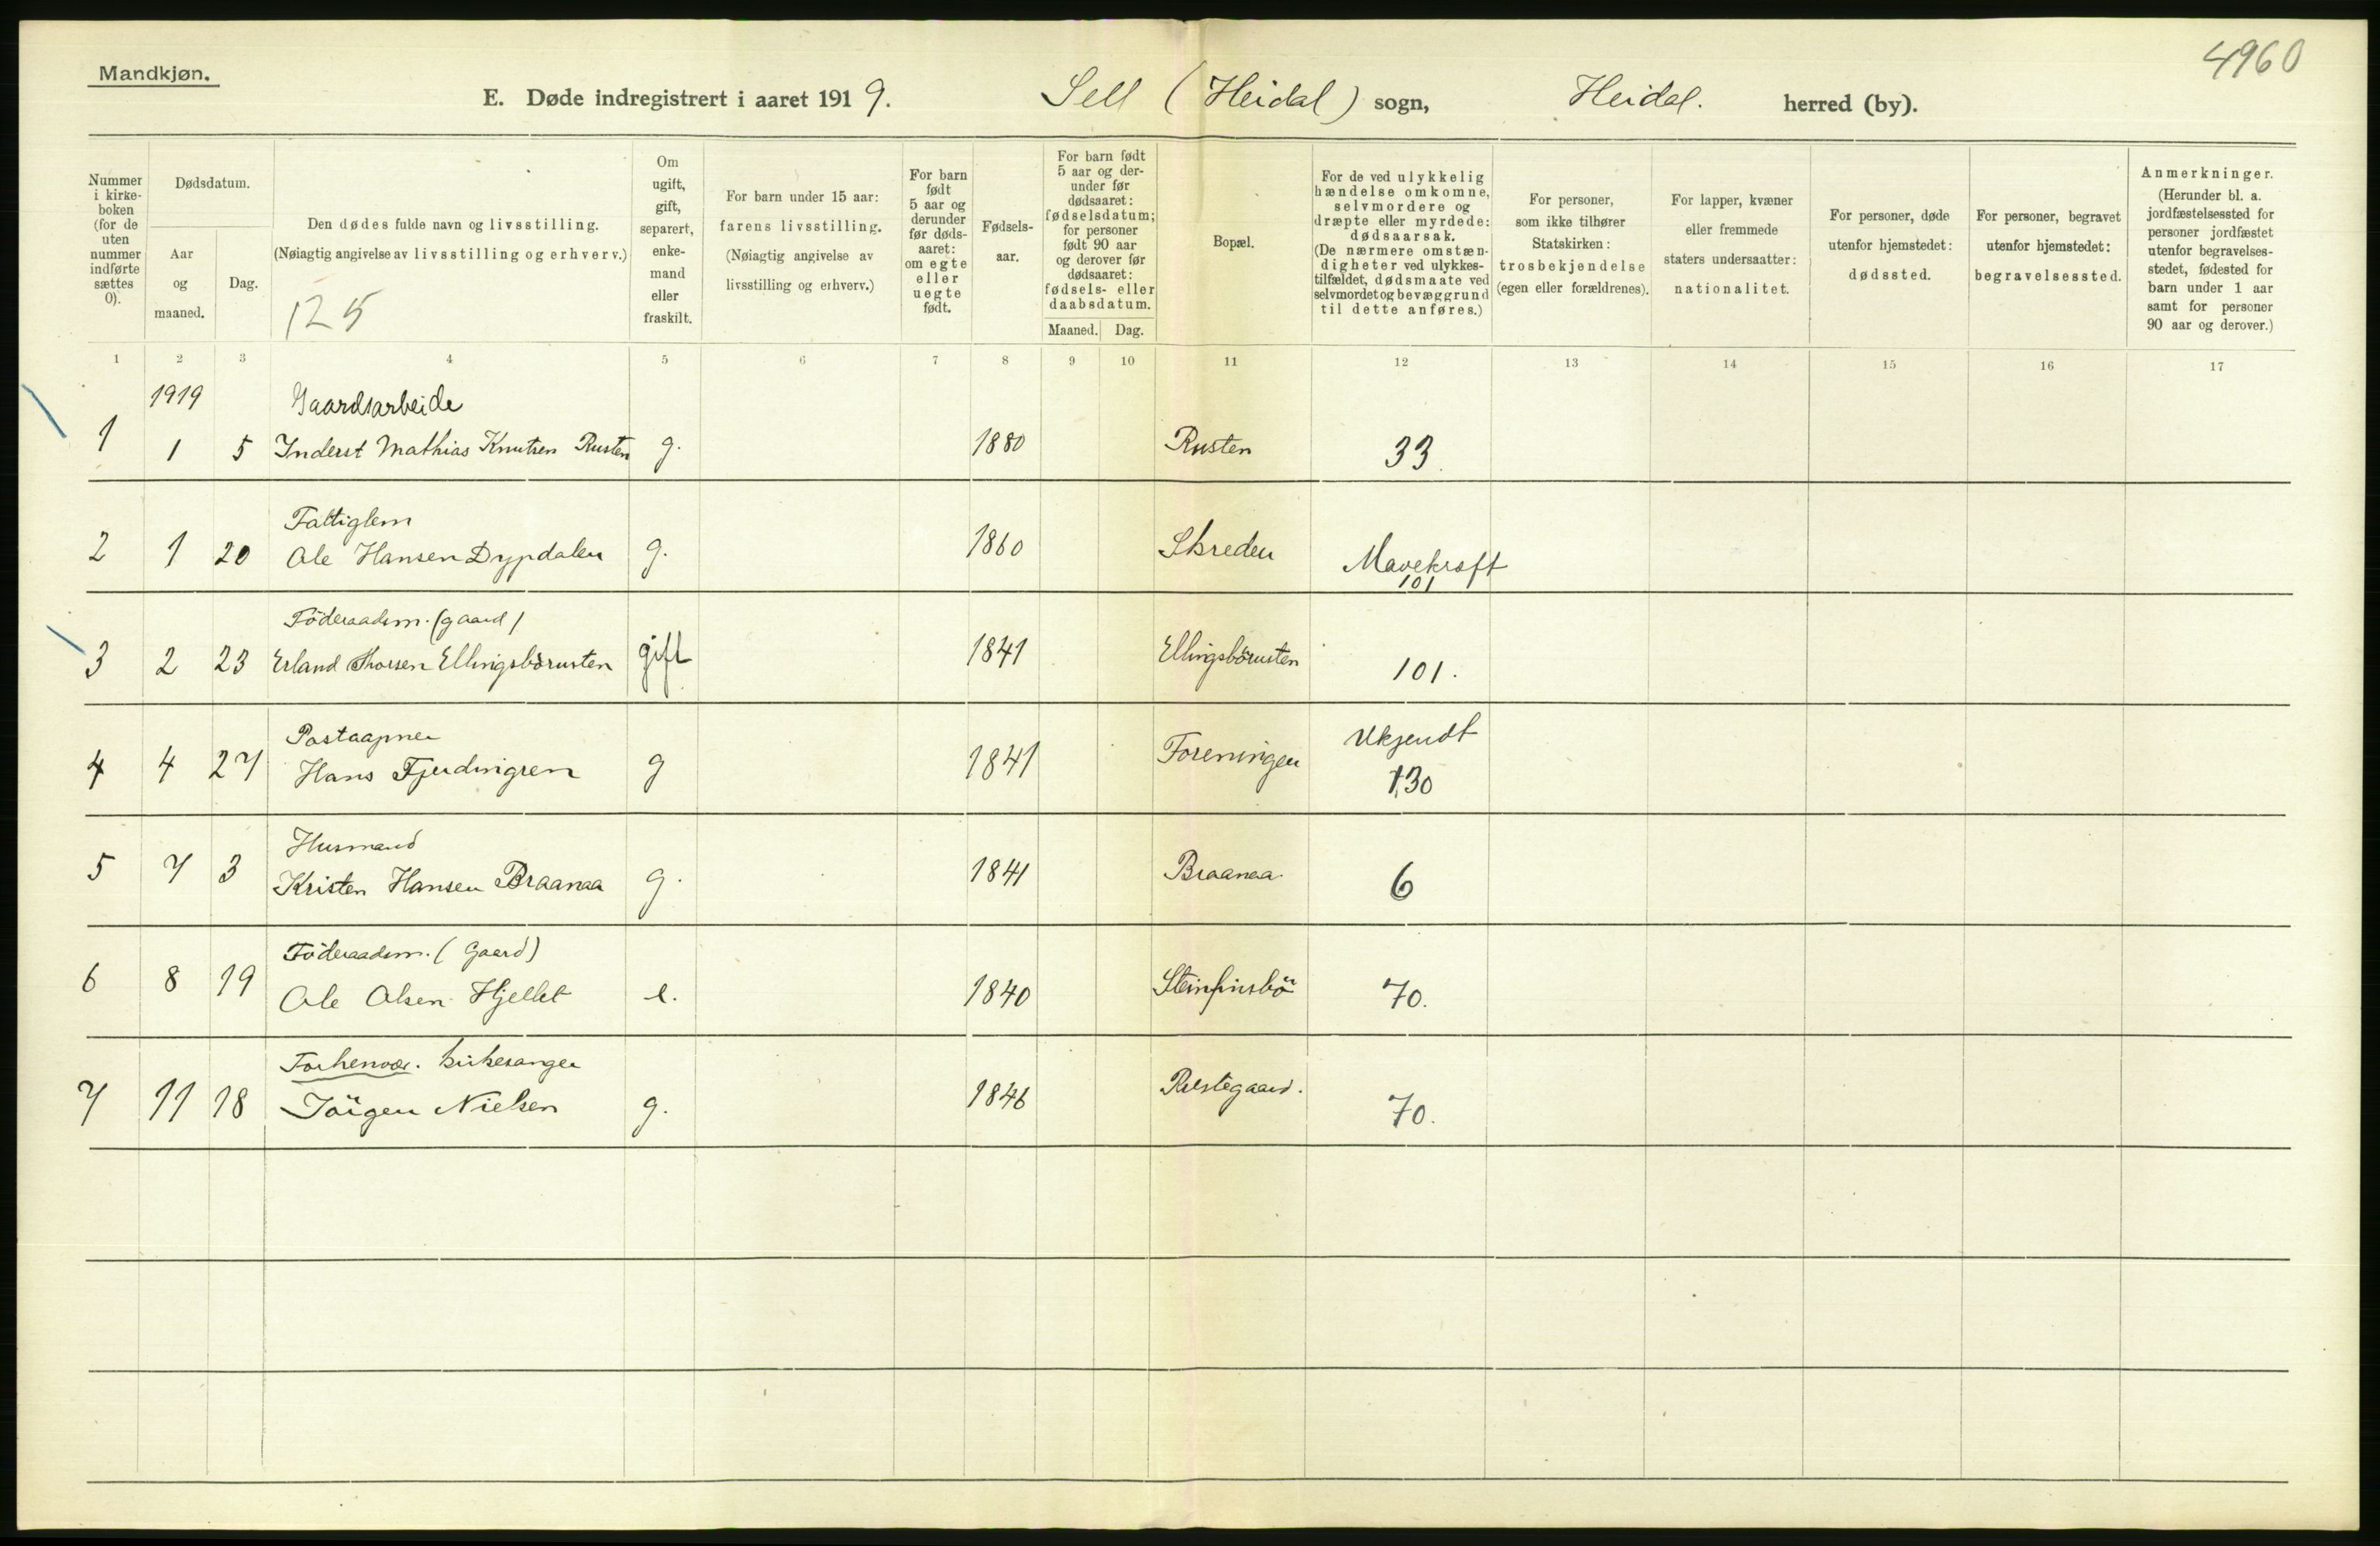 4960
Mandkjøn.
E. Døde indregistrert i aaret 1919. Sell (Heidal) sogn, Heidal. herred (by).
Nummer i kirkeboken (for de uten nummer indførte sættes 0).
Dødsdatum.
Aar og maaned.
Dag.
Den dødes fulde navn og livsstilling.
(Nøiagtig angivelse av livsstilling og erhverv.)
125
Om ugift, gift, separert, enkemand eller fraskilt.
For barn under 15 aar: farens livsstilling.
(Nøiagtig angivelse av livsstilling og erhverv.)
For barn født 5 aar og derunder før dødsaaret: om egte eller uegte født.
Fødselsaar.
For barn født 5 aar og derunder før dødsaaret: fødselsdatum; for personer født 90 aar og derover før dødsaaret: fødsels- eller daabsdatum.
Maaned. Dag.
Bopæl.
For de ved ulykkelig hændelse omkomne, selvmordere og dræpte eller myrdede: dødsaarsak.
(De nærmere omstændigheter ved ulykkestilfældet, dødsmaate ved selvmordet og bevæggrund til dette anføres.)
For personer, som ikke tilhører Statskirken: trosbekjendelse (egen eller forældrenes).
For lapper, kvæner eller fremmede staters undersaatter: nationalitet.
For personer, døde utenfor hjemstedet: dødssted.
For personer, begravet utenfor hjemstedet: begravelsessted.
Anmerkninger.
(Herunder bl. a. jordfæstelsessted for personer jordfæstet utenfor begravelsesstedet, fødested for barn under 1 aar samt for personer 90 aar og derover.)
1 2 3 4 5 6 7 8 9 10 11 12 13 14 15 16 17
1919 Gaardsarbeide
1 1 5 Inderst Mathias Knutsen Rusten g. 1880 Rusten 33.
Fattiglem
2 1 20 Ole Hansen Dypdalen g. 1860 Skreden Mavekræft
101
Föderaadsm. (gaard)
3 2 23 Erland Thorsen Ellingsbörusten gift 1841 Ellingsbörusten 101.
Postaapner Ukjendt
4 4 27 Hans Fjerdingren g 1841 Foreningen 130
Husmand
5 7 3 Kristen Hansen Braanaa g. 1841 Braanaa. 6
Föderaadsm. (Gaard)
6 8 19 Ole Olsen Hjellet e. 1840 Steinfinsbö 70.
Forhenvær. kirkesanger
7 11 18 Jörgen Nielsen g. 1846 Prestegaard. 70.